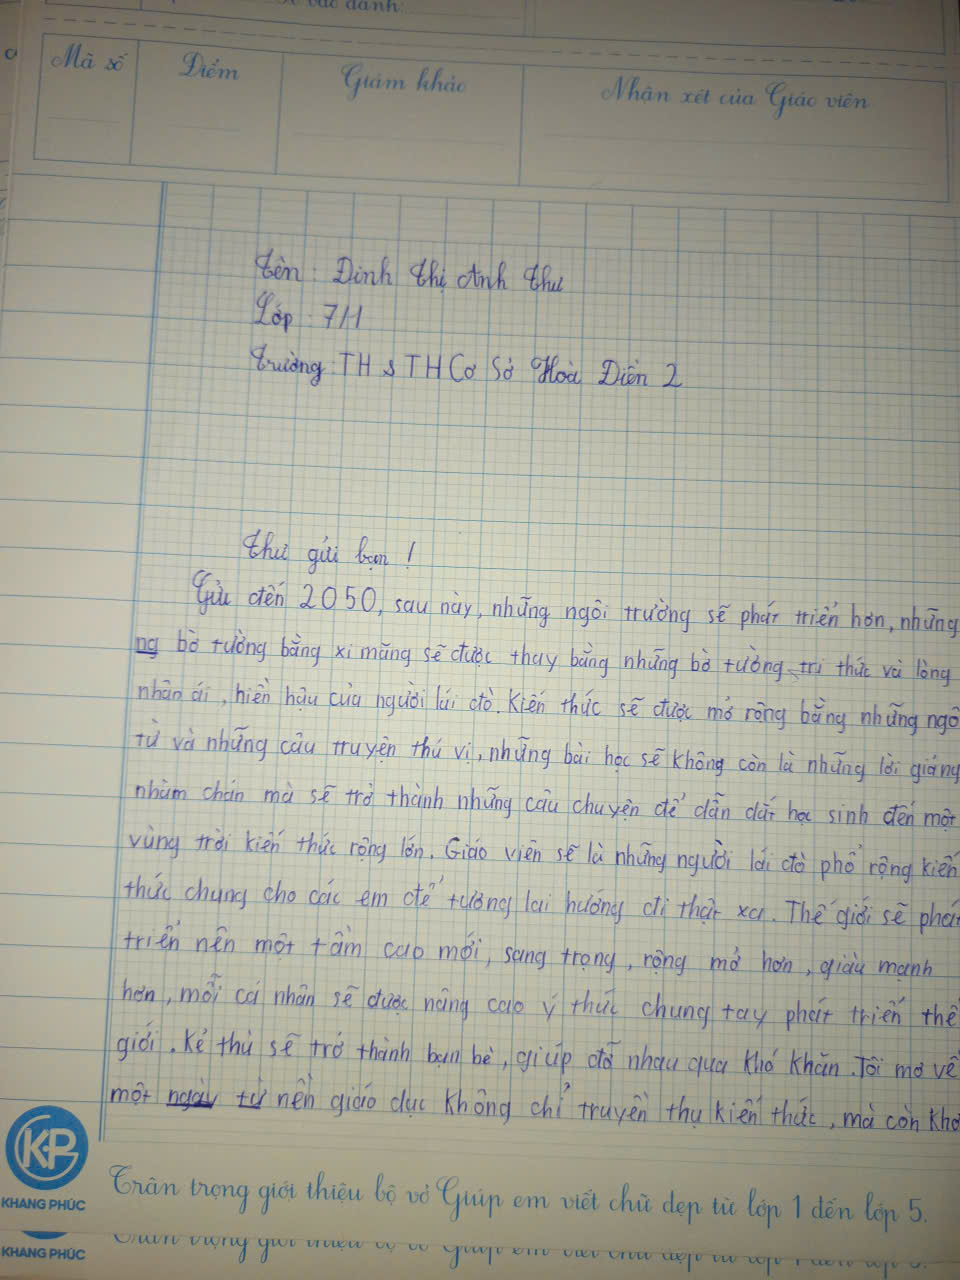 các danh:
Mã số Điểm Giám khảo Nhận xét của Giáo viên
Tên : Đinh Thị Anh Thư
Lớp : 7/1
Trường TH & THCơ Sở Hoà Điền 2
Thư gửi bạn !
Gửi đến 2050, sau này, những ngôi trường sẽ phát triển hơn, những
ng bờ tường bằng xi măng sẽ được thay bằng những bờ tường tri thức và lòng
nhân ái, hiền hậu của người lái đò. Kiến thức sẽ được mở rộng bằng những ngô
từ và những câu truyện thú vị, những bài học sẽ không còn là những lời giảng
nhàm chán mà sẽ trở thành những câu chuyện để dẫn dắt học sinh đến một
vùng trời kiến thức rộng lớn. Giáo viên sẽ là những người lái đò phổ rộng kiến
thức chung cho các em để tương lai hướng đi thật xa. Thế giới sẽ phát
triển nên một tầm cao mới, sang trọng, rộng mở hơn, giàu mạnh
hơn, mỗi cá nhân sẽ được nâng cao ý thức chung tay phát triển thế
giới. Kẻ thù sẽ trở thành bạn bè, giúp đỡ nhau qua khó khăn. Tôi mơ về
một ngày từ nền giáo dục không chỉ truyền thụ kiến thức, mà còn khơ
KP
KHANG PHÚC
Trân trọng giới thiệu bộ vở Giúp em viết chữ đẹp từ lớp 1 đến lớp 5.
KHANG PHÚC